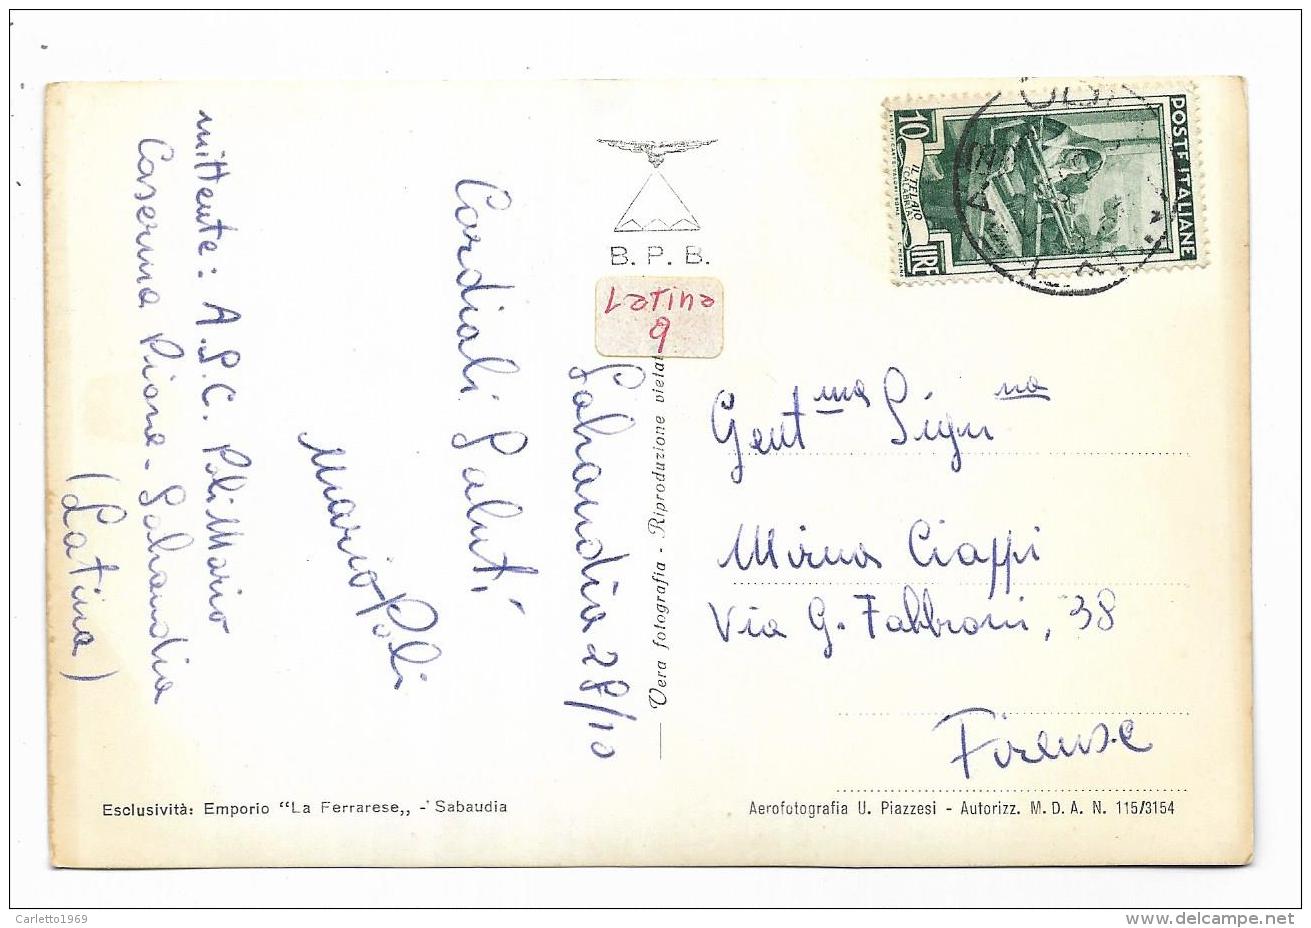 mittente: A.S.C. Poli Mario
Caserma Piave - Sabaudia
(Latina)
Cordiali Saluti
Mario Poli
Sabaudia 28/10
B. P. B.
Latina
9
Vera fotografia - Riproduzione vietat
POSTE ITALIANE
10
LIRE
IL TELAIO
CALABRIA
Gent ma Sign na
Mirna Ciappi
Via G. Fabbroni, 38
Firenze
Esclusività: Emporio “La Ferrarese„ - Sabaudia
Aerofotografia U. Piazzesi - Autorizz. M. D. A. N. 115/3154
Carletto1969
www.delcampe.net